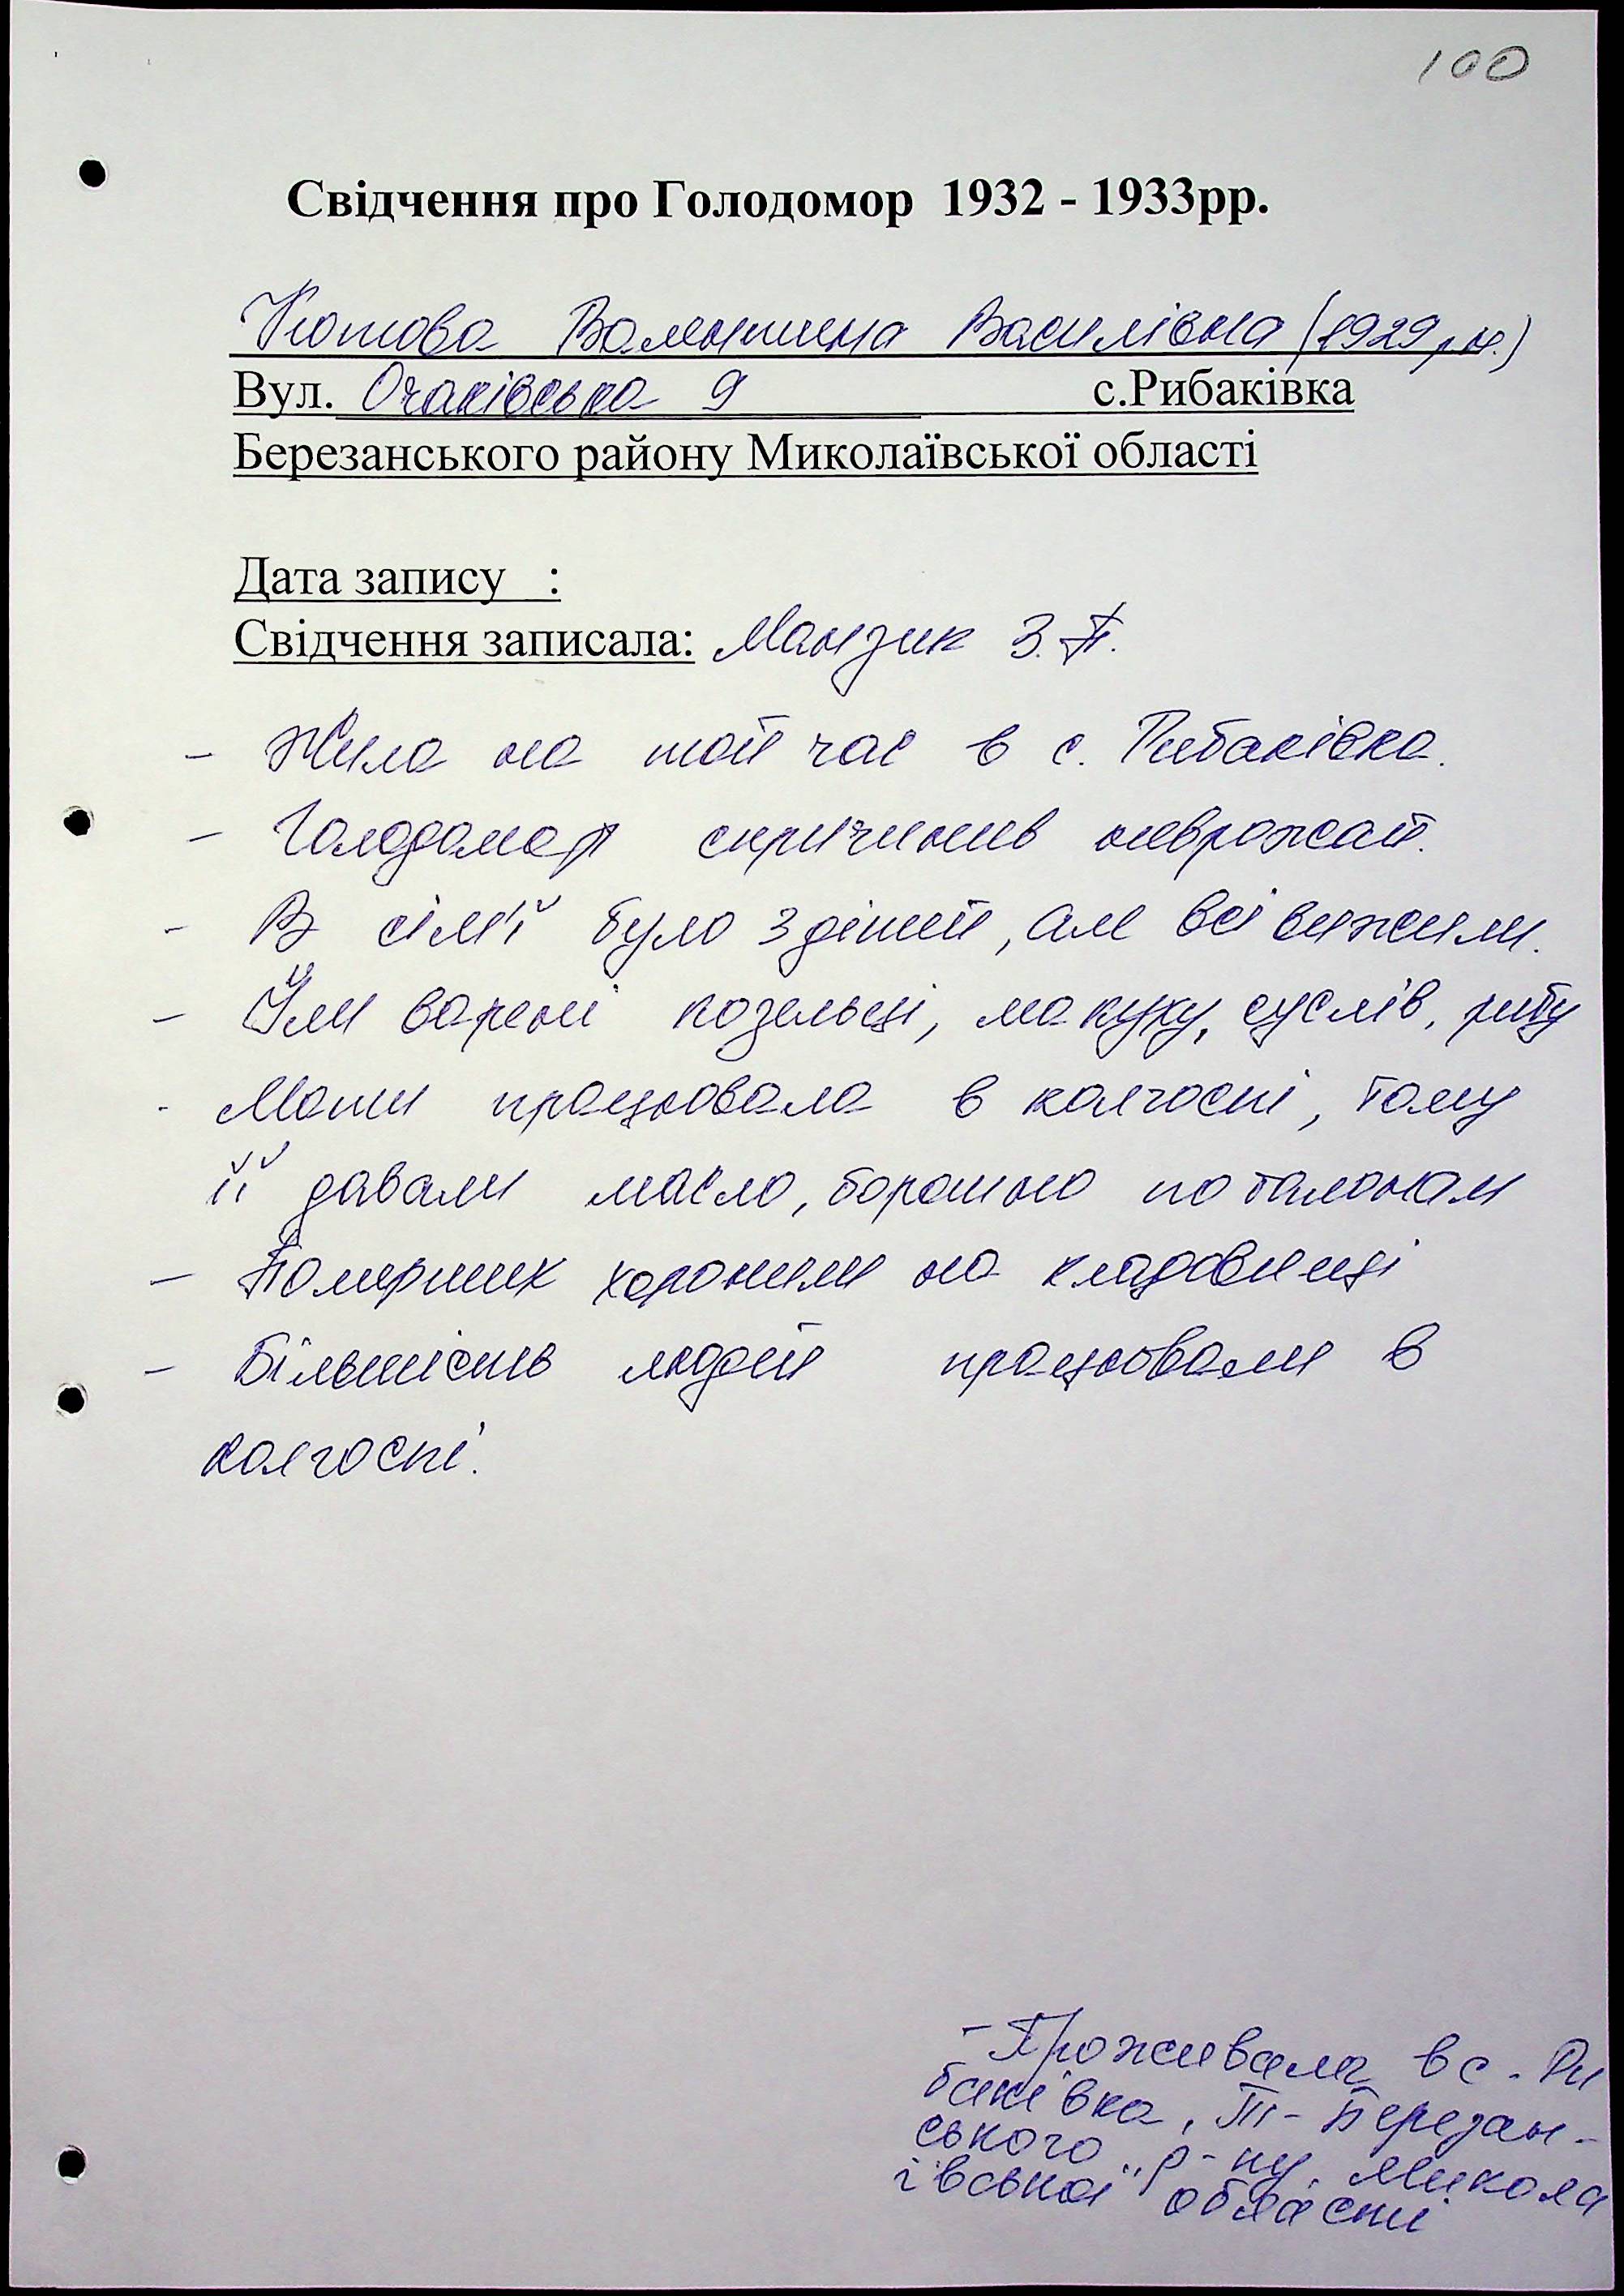 100
Свідчення про Голодомор 1932 - 1933рр.
Валентина Василівна (1929 р.н.)
Вул. Очаківська 9 с.Рибаківка
Березанського району Миколаївської області
Дата запису :
Свідчення записала: Манзик З.П.
- Жила на той час в с. Рибаківка.
- Голодомор спричинив неврожай.
- В сім'ї було 3 дітей, але всі вижили.
- Їли варені козельці, макуху, суслів, рибу
- Мати працювала в колгоспі, тому
її давали масло, борошно по талонам
- Померших хоронили на кладовищі
- Більшість людей працювали в
колгоспі.
- Проживала в с. Ри
баківка, Березан-
ського р-ну. Микола
ївської області